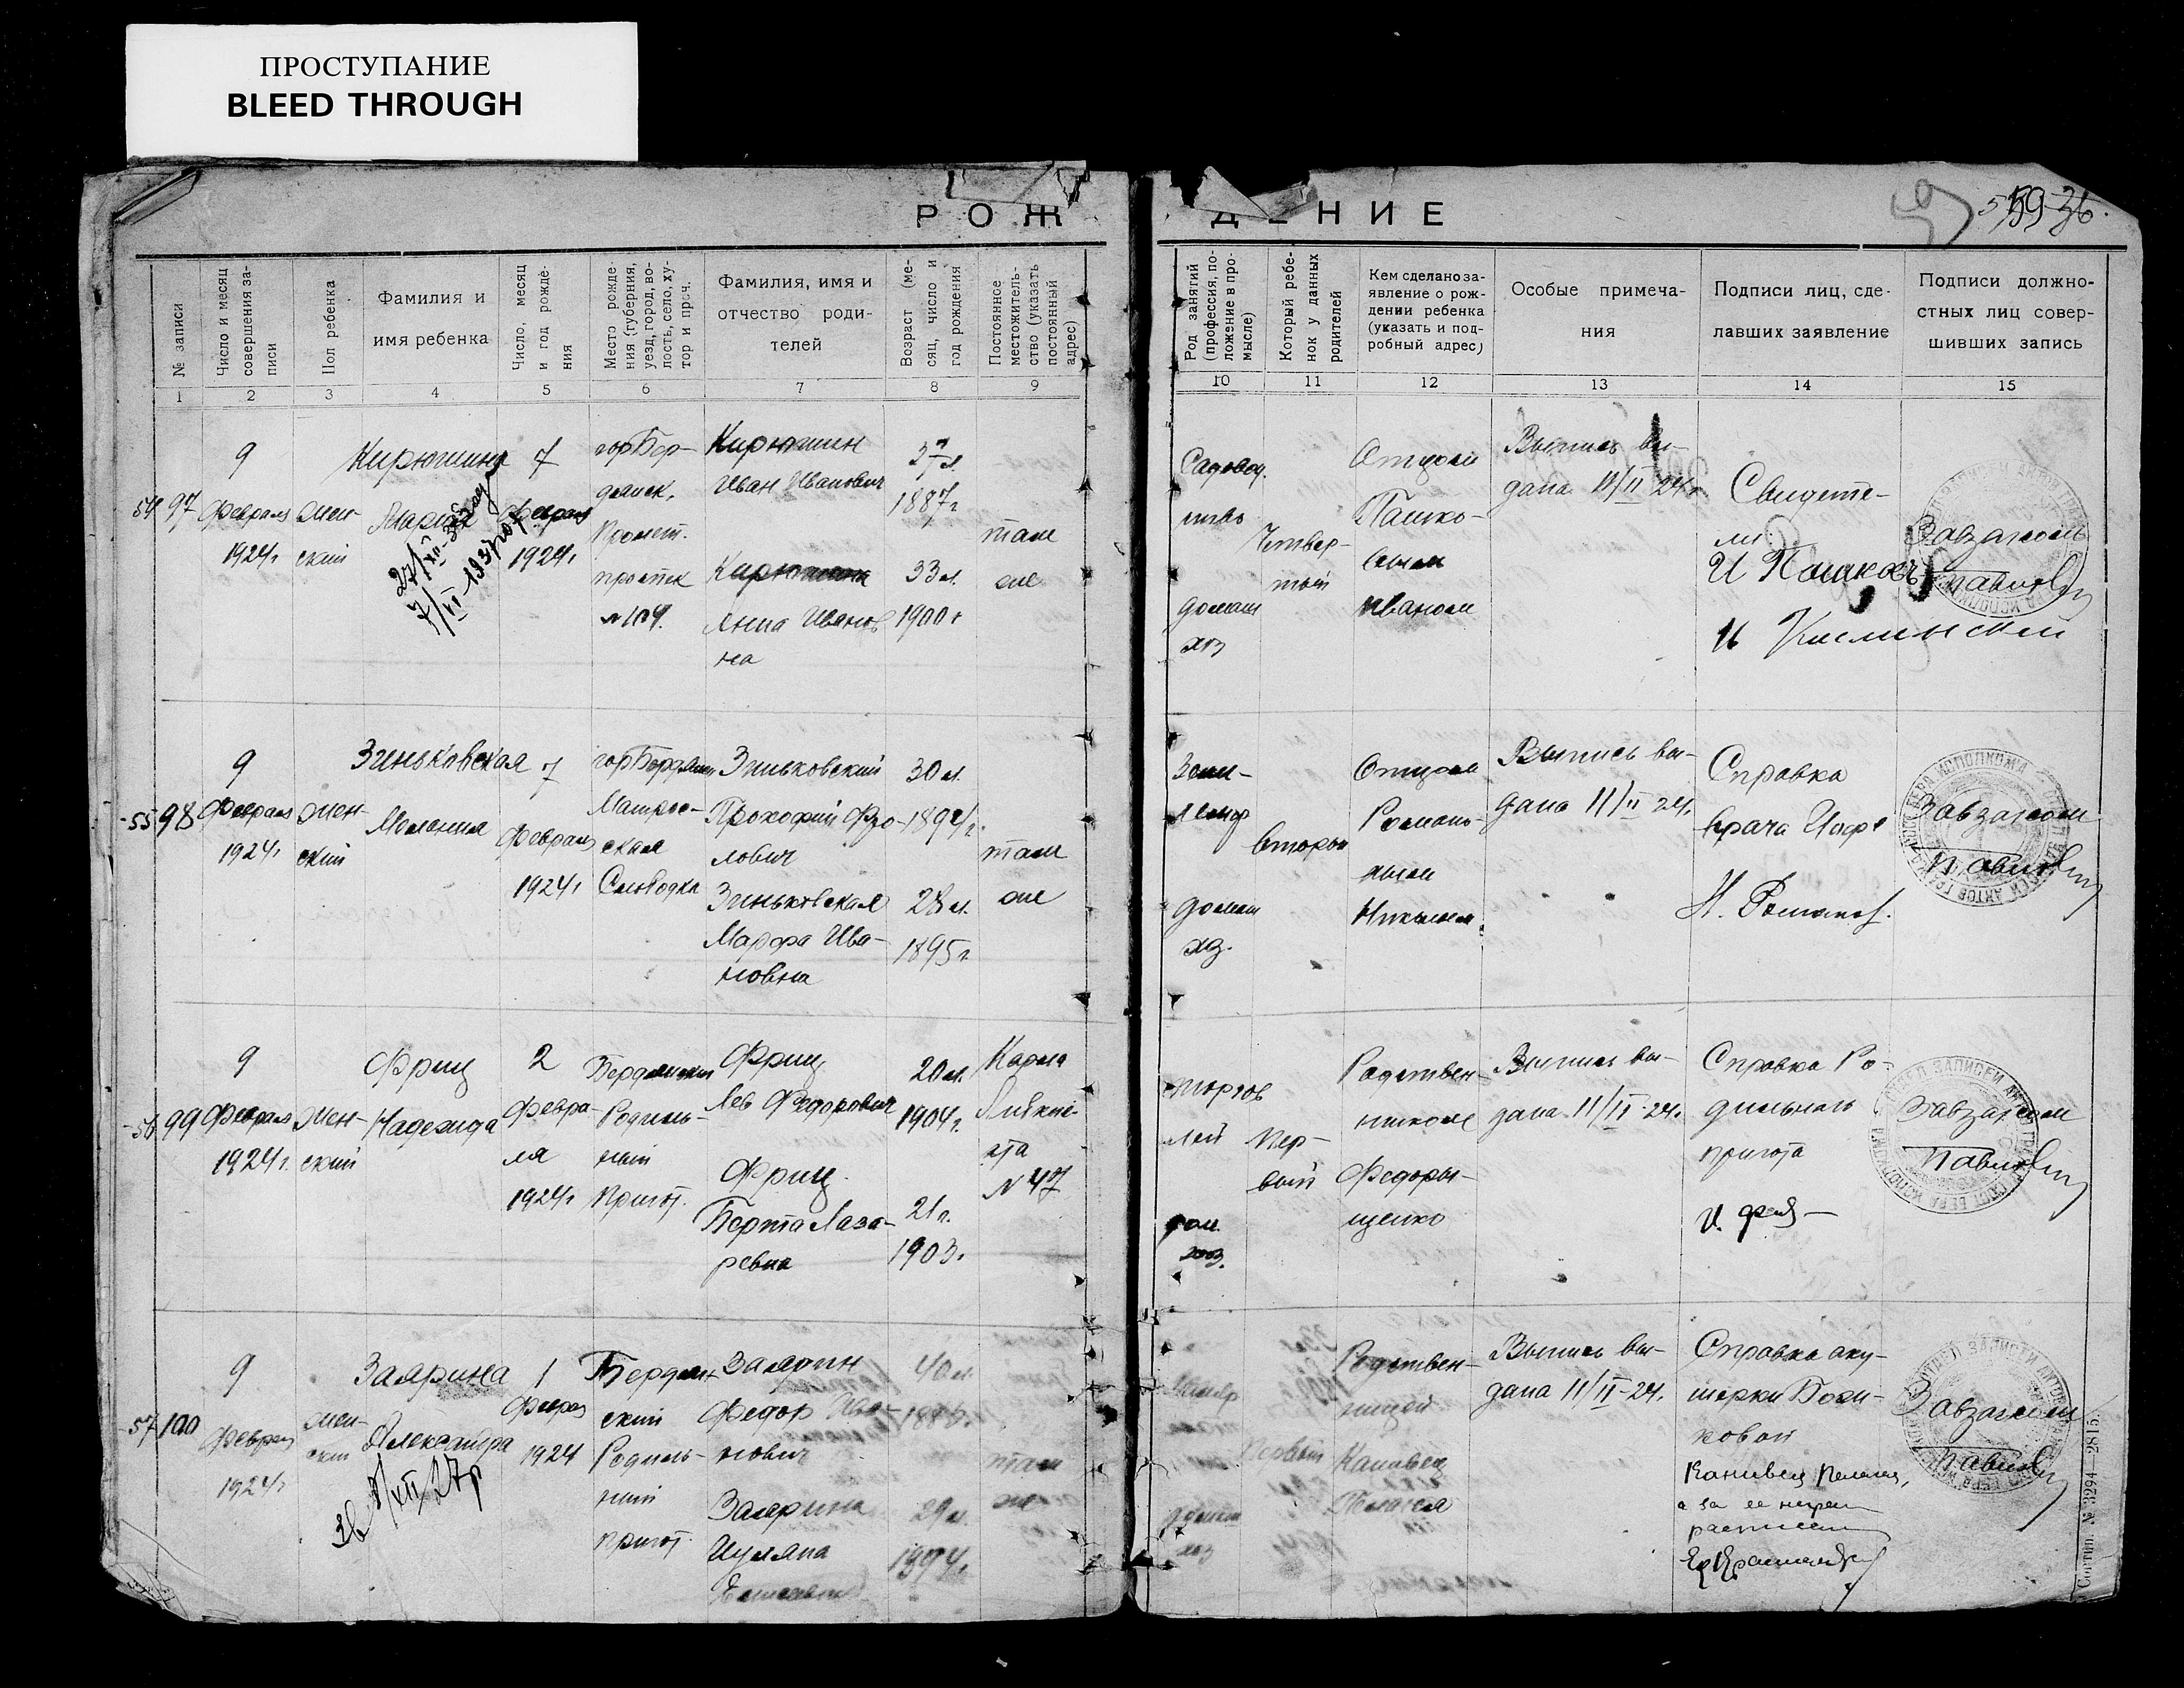 ПРОСТУПАНИЕ
BLEED THROUGH
РОЖДЕНИЕ
59-36.
№ записи
Число и месяц совершения записи
Пол ребенка
Фамилия и
имя ребенка
Число, месяц и год рождения
Место рождения (губерния, уезд, город, волость, село, хутор и проч.
Фамилия, имя и
отчество роди-
телей
Возраст (месяц, число и год рождения
Постоянное местожительство (указать постоянный адрес)
Род занятий (профессия, положение в промысле)
Который ребенок у данных родителей
Кем сделано за-
явление о рож-
дении ребенка
(указать и под-
робный адрес)
Особые примеча-
ния
Подписи лиц, сде-
лавших заявление
Подписи должно-
стных лиц совер-
шивших запись
1 2 3 4 5 6 7 8 9 10 11 12 13 14 15
54 97
9
февраля
1924г
жен-
ский
Кирюшина
Мария
7
февраля
1924г
гор Бер-
дянск,
Пролет.
проспек
N 109.
Кирюшин
Иван Иванович
Кирюшина
Анна Иванов
на
37л.
1887г
33л.
1900г
там
же
Садовод.
ство
домаш
хоз
Четвер-
тый
Отцом
Пашко-
вым
Иваном
Выпись вы-
дана 11/II 24г
Свидете-
ли.
И Пашковъ
И
Завзагсом
Павлов
55 98
9
февраля
1924г
жен-
ский
Зиньковская
Мелания
7
февраля
1924г
гор Бердянск
Матрос-
ская
Слободка
Зиньковский
Прокофий Фро-
лович
Зиньковская
Марфа Ива-
новна
30л.
189
28л.
1895г
там
же
Земле-
домаш
хоз.
второй
Отцом
Выпись вы-
дана 11/II 24г.
Справка
врача
Н. Романов.
Завзагсом
Павлов
56 99
9
февраля
1924г.
жен-
ский
Фриц
Надежда
2
февра-
ля
1924г
Бердянский
Родиль-
ный
Приют.
Фриц
Лев Федорович
Фриц
Берта Лаза-
ревна
20л.
1904г.
21г.
1903.
Карла
Либкне-
хта
N 47
торгов
лей
дом.
хоз.
пер-
вый
Родствен-
ником
Федоры-
щенко
Выпись вы-
дана 11/II-24г.
Справка Ро-
дильного
приюта
Завзагсом
Павлов
57 100
9
февраля
1924г
жен-
ский
Заярина
Александра
1
февраля
1924
Бердян-
ский
Родиль-
ный
приют.
Заярин
Федор Ива-
нович
Заярина
40л.
29л.
там
же
домаш
хоз
первый
Родствен-
ницей
Канивец
Пелагея
Выпись вы-
дана 11/II-24г.
Справка аку-
шерки
Канивец Пелагея,
а за ее неграм
Завзагсом
Павлов
№ 3294—2815.